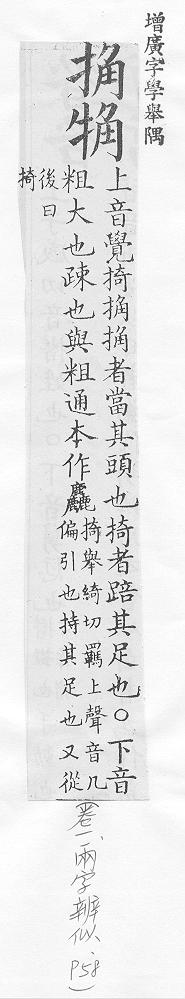 增廣字學舉隅
捔觕
上音覺掎捔捔者當其頭也掎者踣其足也〇下音
粗大也疎也與粗通本作麤掎舉綺切羈上聲音几
偏引也持其足也又從
後曰
掎
(卷二、兩字辨似、P.58)